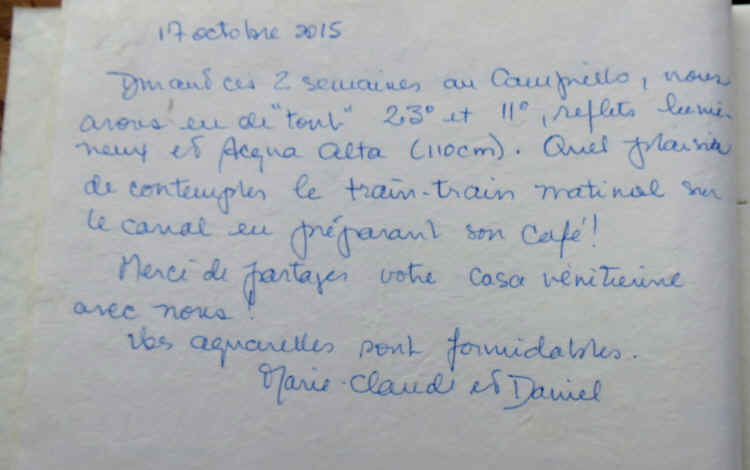 17 octobre 2015
Durant ces 2 semaines au Campiello, nous
avons eu de "tout" 23° et 11°, reflets lumi-
neux et Acqua alta (110cm). Quel plaisir
de contempler le train-train matinal sur
le canal en préparant son café!
Merci de partager votre casa vénitienne
avec nous!
Vos aquarelles sont formidables.
Marie-Claude et Daniel